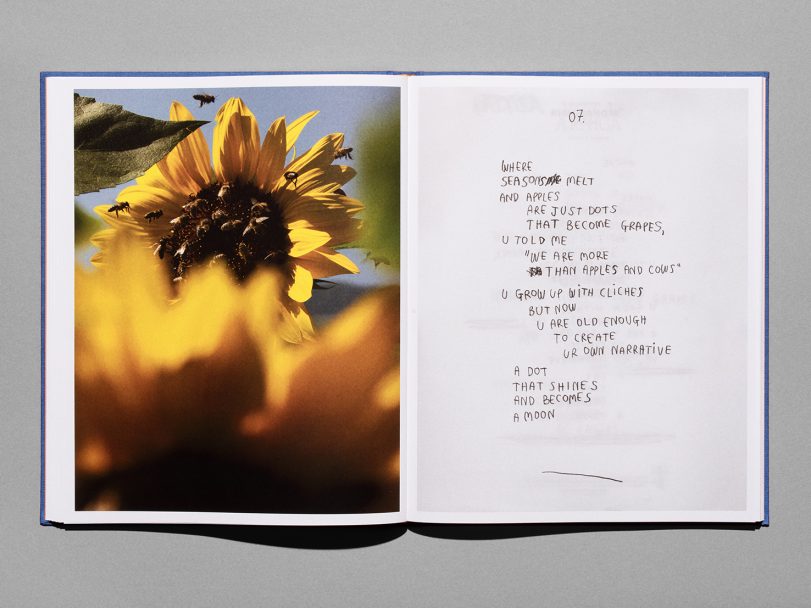 07.
WHERE
SEASONS MELT
AND APPLES
ARE JUST DOTS
THAT BECOME GRAPES,
U TOLD ME
"WE ARE MORE
THAN APPLES AND COWS"
U GROW UP WITH CLICHES
BUT NOW
U ARE OLD ENOUGH
TO CREATE
UR OWN NARRATIVE
A DOT
THAT SHINES
AND BECOMES
A MOON